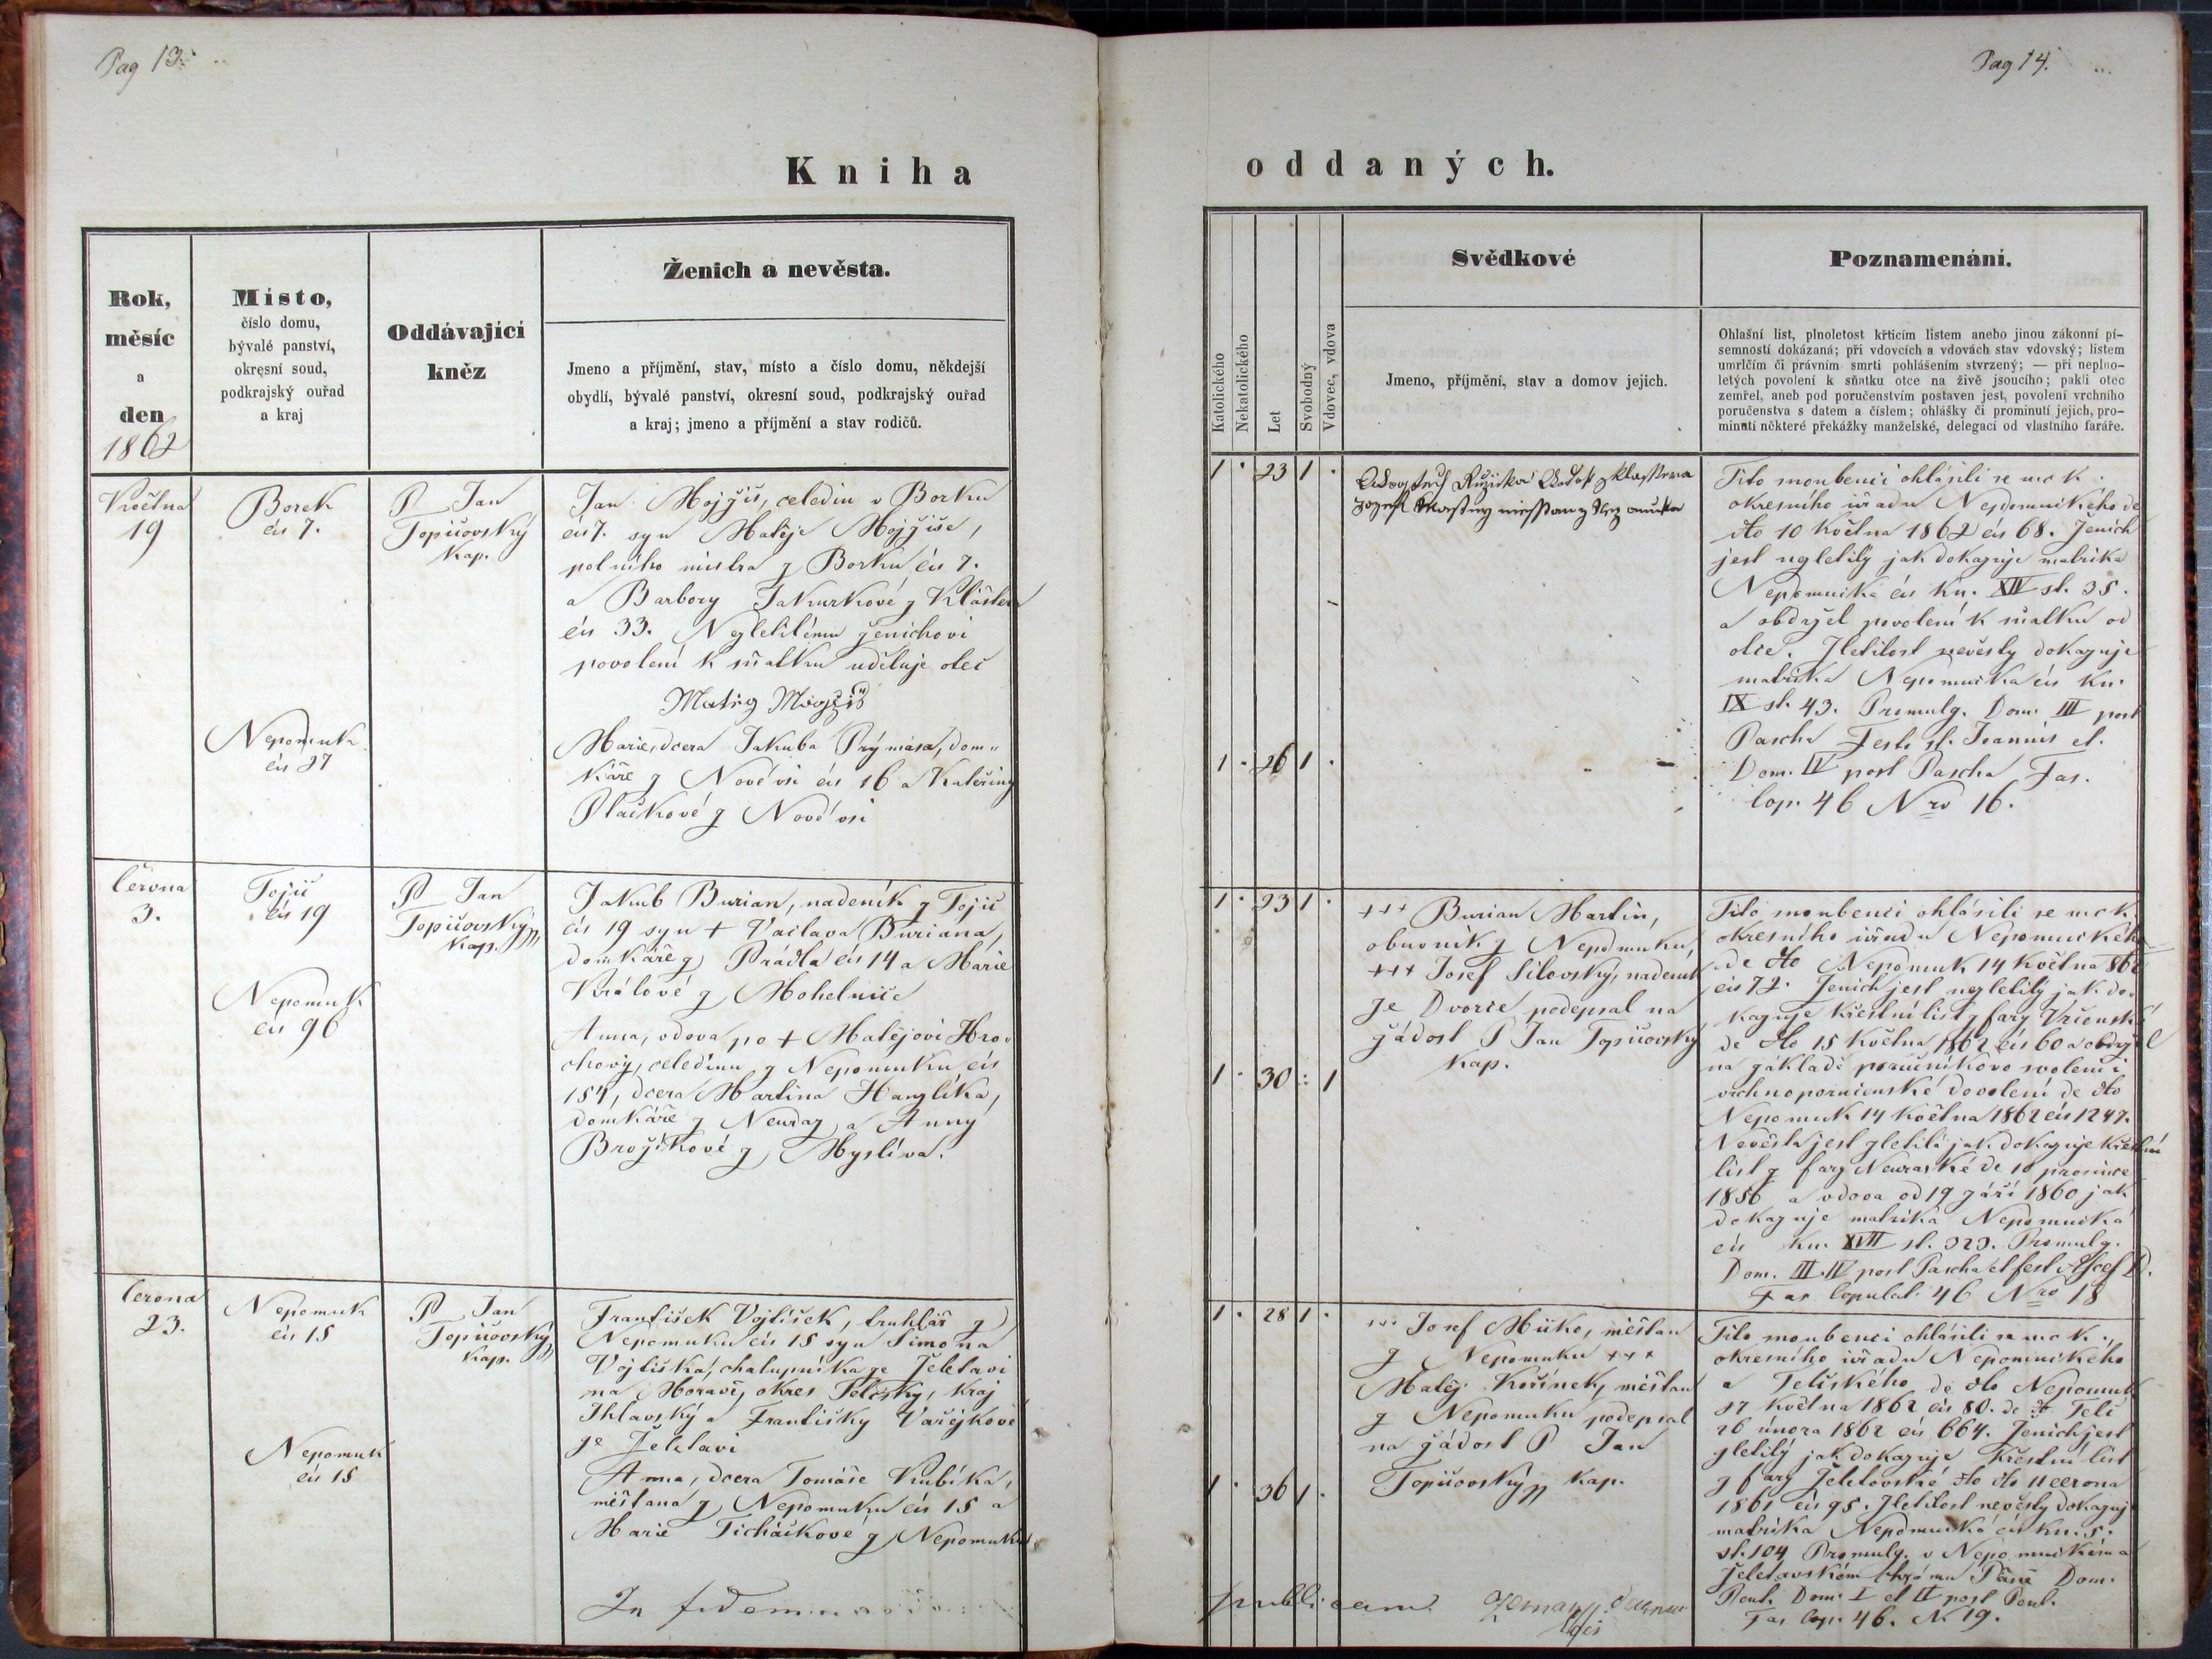 Pag 13.
Kniha
Rok,
měsíc
a
den
1862
Místo,
číslo domu,
bývalé panství,
okresní soud,
podkrajský ouřad
a kraj
Oddávající
kněz
Ženich a nevěsta.
Jmeno a příjmění, stav, místo a číslo domu, někdejší
obydlí, bývalé panství, okresní soud, podkrajský ouřad
a kraj; jmeno a příjmění a stav rodičů.
Května
19
Borek
čís 7.
P Jan
Topičovský
Kap.
Jan Mojžiš, celedin v Borku
čís 7. syn Matěje Mojžiše,
polního mistra z Borku čís 7.
a Barbory Jakurkové z Kláštera
čís 33. Nezletilému ženichovi
povolení k sňatku uděluje otec
Nepomuk
čís 27
Marie, dcera Jakuba Prýmasa, dom„
káře z Nové vsi čís 16 a Kateřiny
Plačkové z Nové vsi
Června
3.
Tojic
čís 19
P Jan
Topičovský
Kap.
Jakub Burian, nadeník z Tojic
čís 19 syn + Vaclava Buriana,
domkáře z Prádla čís 14 a Marie
Králové z Mohelnice
Nepomuk
čís 96
Anna, vdova po + Matějovi Hro„
chovy, celedínu z Nepomuku čís
154, dcera Martina Hanzlíka,
domkáře z Neuraz a Anny
Brožíkové z Myslíva.
Června
23.
Nepomuk
čís 15
P Jan
Topičovský
Kap.
František Vojtíšek, truhlář z
Nepomuku čís 15 syn Šimona
Vojtíška, chalupníka ze Želetavi
na Moravě, okres Telčský, kraj
Ihlavský a Františky Vařejkové
ze Želetavi
Nepomuk
čís 15
Anna, dcera Tomáše Kubíka,
měšťana z Nepomuku čís 15 a
Marie Ticháčkové z Nepomuku
In fidem
Pag 14.
oddaných.
Katolického
Nekatolického
Let
Svobodný
Vdovec, vdova
Svědkové
Jmeno, příjmění, stav a domov jejich.
Poznamenání.
Ohlašní list, plnoletost křticím listem anebo jinou zákonní pí-
semností dokázaná; při vdovcích a vdovách stav vdovský; listem
umrlčím či právním smrti pohlášením stvrzený; — při neplno-
letých povolení k sňatku otce na živě jsoucího; pakli otec
zemřel, aneb pod poručenstvím postaven jest, povolení vrchního
poručenstva s datem a číslem; ohlášky či prominutí jejich, pro-
minutí některé překážky manželské, delegací od vlastního faráře.
1 23 1
1 26 1
Tito snoubenci ohlásili se u c k.
okresního úřadu Nepomuckého de
dto 10 Května 1862 čís 68. Ženich
jest nezletilý jak dokazuje matrika
Nepomucká čís kn. XIV st. 35.
a obdržel povolení k sňatku od
otce. Zletilost nevěsty dokazuje
matrika Nepomucká čís kn.
IX st. 43. Promulg. Dom. III post
Pascha Festo st. Joannis et.
Dom. IV post Pascha Fas.
Cop. 46 Nro 16.
1 23 1
1 30 1
+++ Burian Martin,
obuvník z Nepomuku
+++ Josef Silovský, nadeník
ze Dvorce podepsal na
žádost P Jan Topičovský
Kap.
Tito snoubenci ohlásili se u c k.
okresního úřadu Nepomuckého
de dto Nepomuk 14 Května 862
čís 72. Ženich jest nezletilý jak do„
kazuje křestní list z fary Vrčenské
de dto 15 Května 1862 čís 60 a obdržel
na základě poručníkovo svolení i
vrchnoporučenské dovolení de dto
Nepomuk 14 Května 1862 čís 1247.
Nevěsta jest zletilá jak dokazuje křestní
list z fary Neurazské de 10 prosince
1856 a vdova od 19 září 1860 jak
dokazuje matrika Nepomucká
čís kn. XVII st. 323. Promulg.
Dom. III. IV post Pascha et fest Ascef D.
Fas Copulat. 46 Nro 18
1 28 1
1 36 1
+++ Josef Míčko, měšťan
z Nepomuku +++
Matěj Kořínek, měšťan
z Nepomuku podepsal
na žádost P Jan
Topičovský Kap.
Tito snoubenci ohlásili se u c k.
okresního úřadu Nepomuckého
a Telčského de dto Nepomuk
27 května 1862 čís 80. de dt Telč
26 února 1862 čís 664. Ženich jest
zletilý jak dokazuje Křestní list
z fary Želetavské dto dto 11 června
1861 čís 95. Zletilost nevěsty dokazuje
matrika Nepomucká čís kn. 5.
st. 104 Promulg. v Nepomuckém a
Želetavském chrámu Páně Dom.
Pent. Dom. I et II post Pent.
Fas Cop. 46. N. 19.
publicam